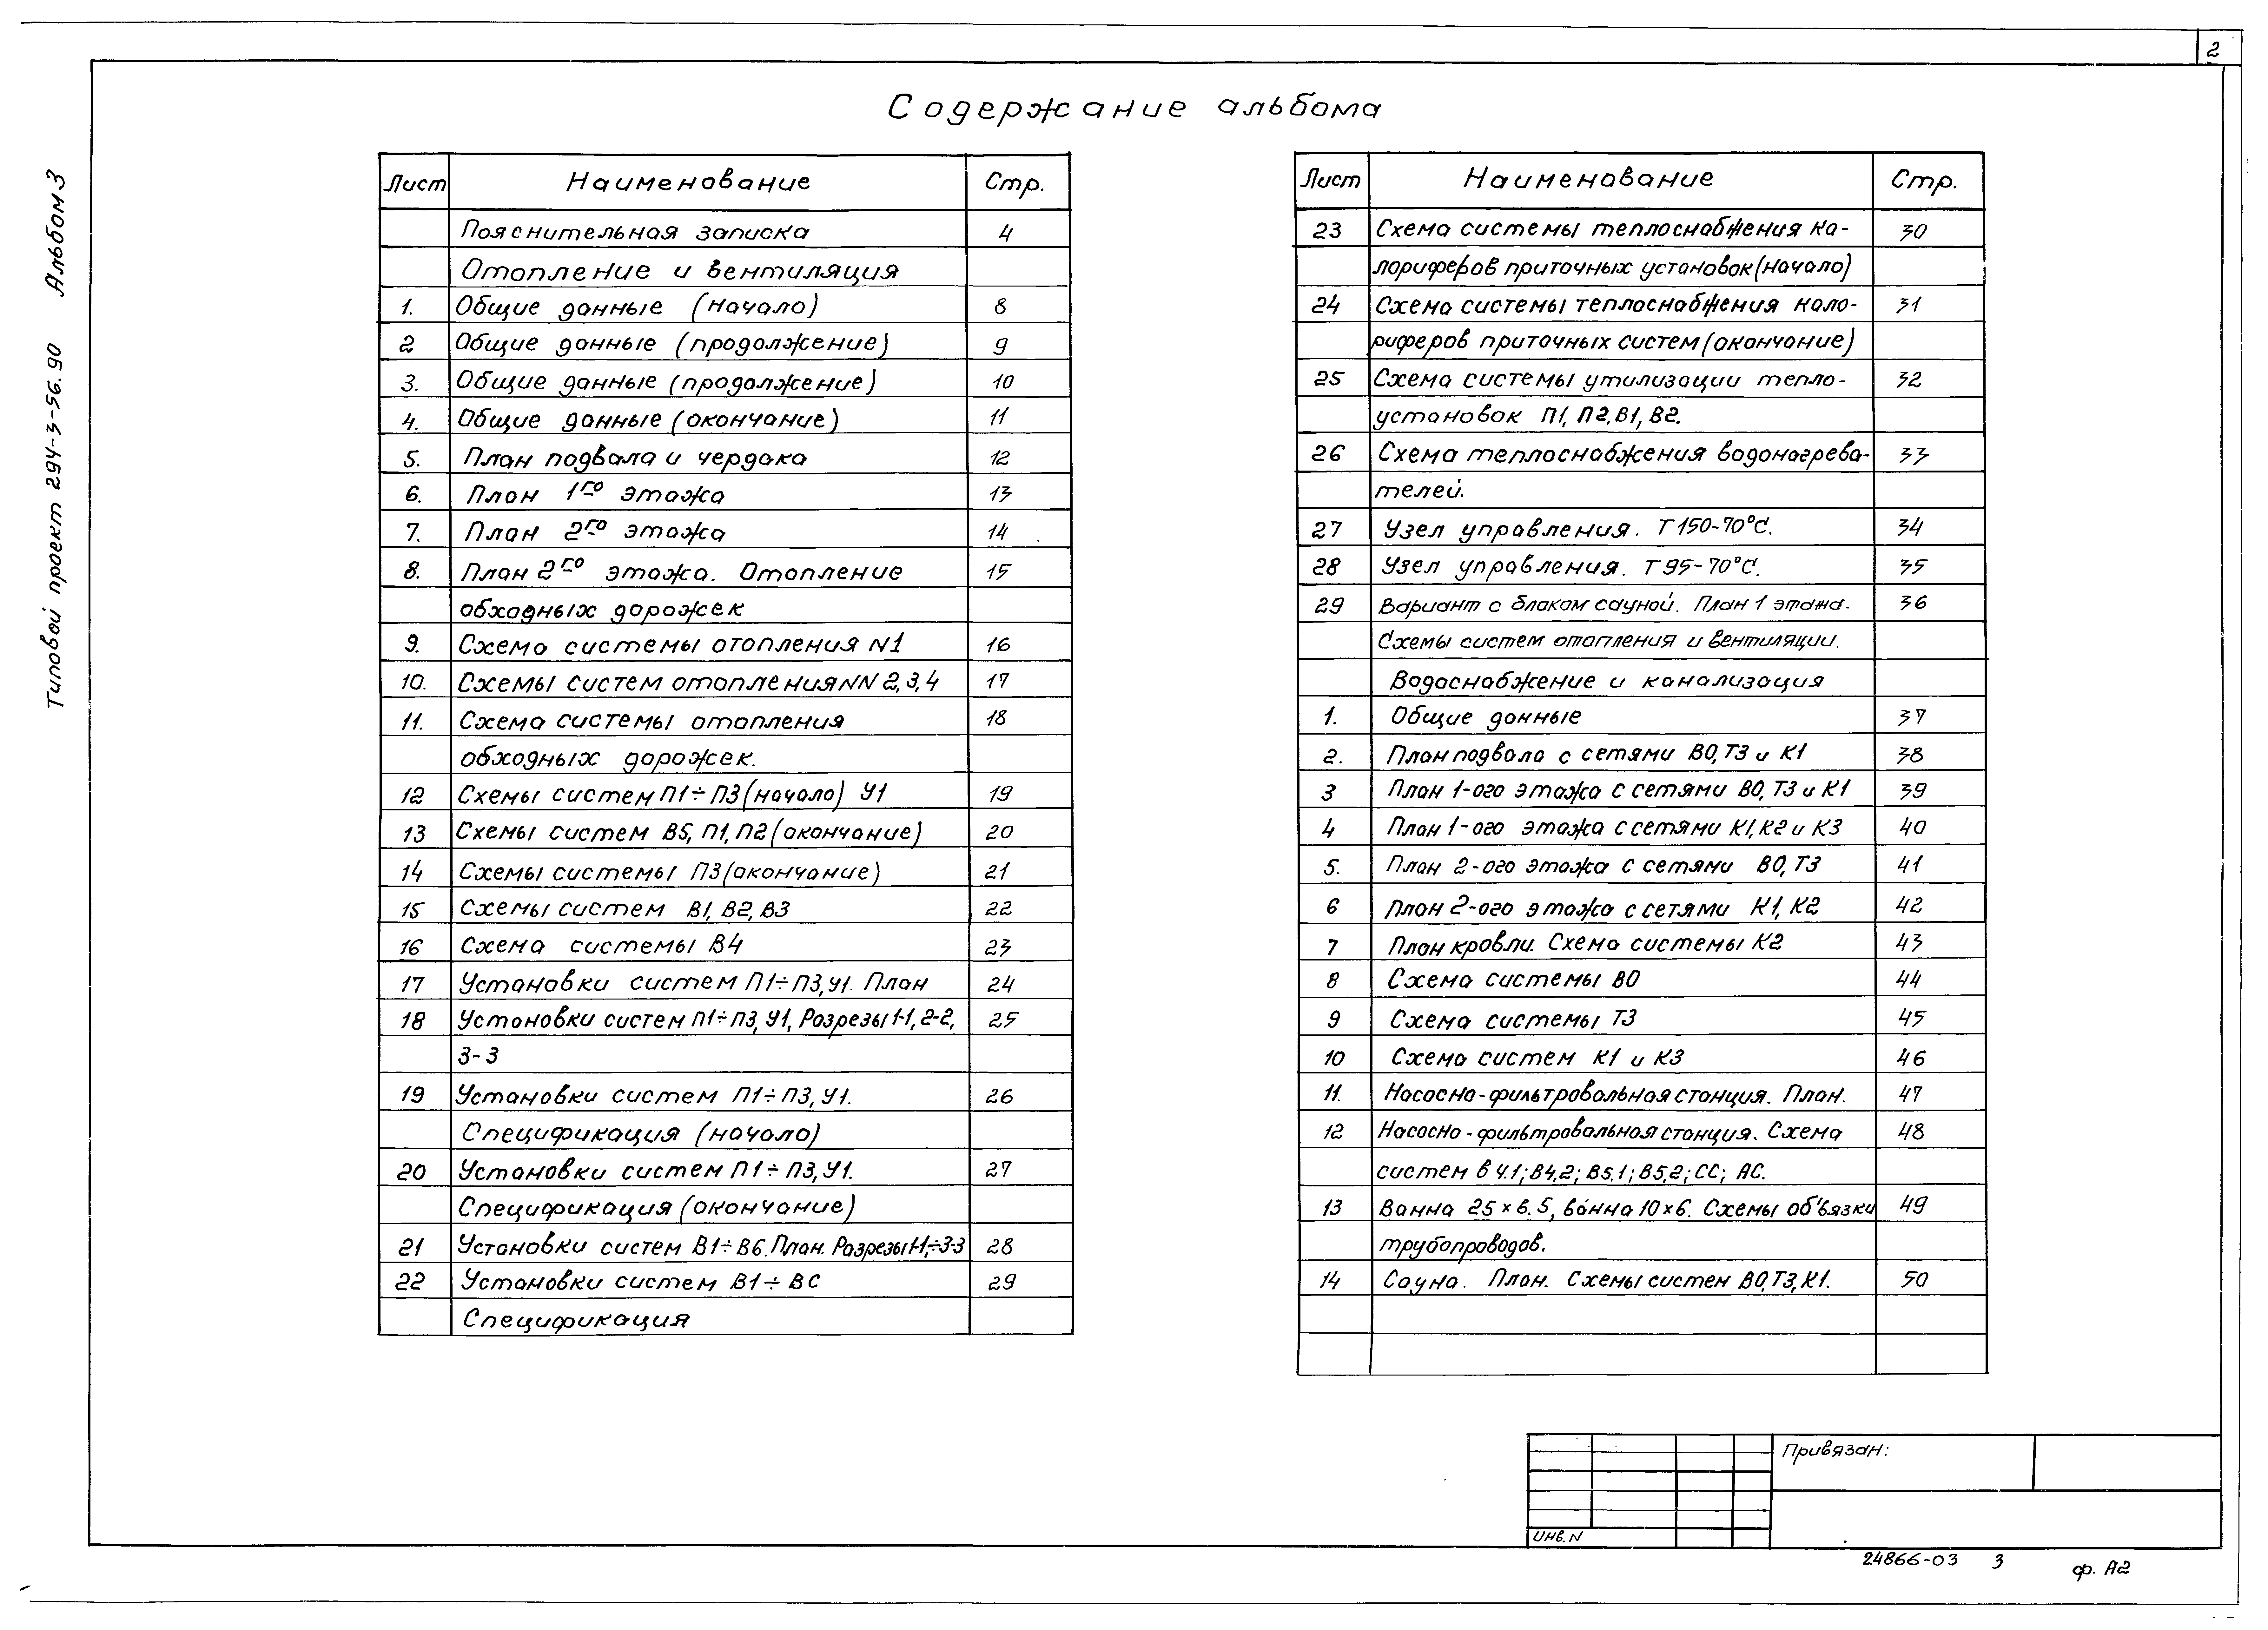 2
Содержание альбома
Типовой проект 294-3-56.90 Альбом 3
Лист Наименование Стр.
Пояснительная записка 4
Отопление и вентиляция
1. Общие данные (начало) 8
2 Общие данные (продолжение) 9
3. Общие данные (продолжение) 10
4. Общие данные (окончание) 11
5. План подвала и чердака 12
6. План 1го этажа 13
7. План 2го этажа 14
8. План 2го этажа. Отопление 15
обходных дорожек
9. Схема системы отопления N1 16
10. Схемы систем отопления NN 2, 3, 4 17
11. Схема системы отопления 18
обходных дорожек.
12 Схемы систем П1÷П3 (начало) У1 19
13 Схемы систем В5, П1, П2 (окончание) 20
14 Схемы системы П3 (окончание) 21
15 Схемы систем В1, В2, В3 22
16 Схема системы В4 23
17 Установки систем П1÷П3, У1. План 24
18 Установки систем П1÷П3, У1, Разрезы 1-1, 2-2, 25
3-3
19 Установки систем П1÷П3, У1. 26
Спецификация (начало)
20 Установки систем П1÷П3, У1. 27
Спецификация (окончание)
21 Установки систем В1÷В6. План. Разрезы 1-1,÷3-3 28
22 Установки систем В1÷ВС 29
Спецификация
Лист Наименование Стр.
23 Схема системы теплоснабжения ка- 30
лориферов приточных установок (начало)
24 Схема системы теплоснабжения кало- 31
риферов приточных систем (окончание)
25 Схема системы утилизации тепло- 32
установок П1, П2, В1, В2.
26 Схема теплоснабжения водонагрева- 33
телей.
27 Узел управления. Т 150-70°С. 34
28 Узел управления. Т 95-70°С. 35
29 Вариант с блоком сауной. План 1 этажа. 36
Схемы систем отопления и вентиляции.
Водоснабжение и канализация
1. Общие данные 37
2. План подвала с сетями В0, Т3 и К1 38
3 План 1-ого этажа с сетями В0, Т3 и К1 39
4 План 1-ого этажа с сетями К1, К2 и К3 40
5. План 2-ого этажа с сетями В0, Т3 41
6 План 2-ого этажа с сетями К1, К2 42
7 План кровли. Схема системы К2 43
8 Схема системы В0 44
9 Схема системы Т3 45
10 Схема систем К1 и К3 46
11. Насосно-фильтровальная станция. План. 47
12 Насосно-фильтровальная станция. Схема 48
систем в 4.1; В4,2; В5.1; В5,2; СС; АС.
13 Ванна 25×8.5, ванна 10×6. Схемы об'вязки 49
трубопроводов.
14 Сауна. План. Схемы систем В0, Т3, К1. 50
Привязан:
Инв. N
24866-03 3
ф. А2